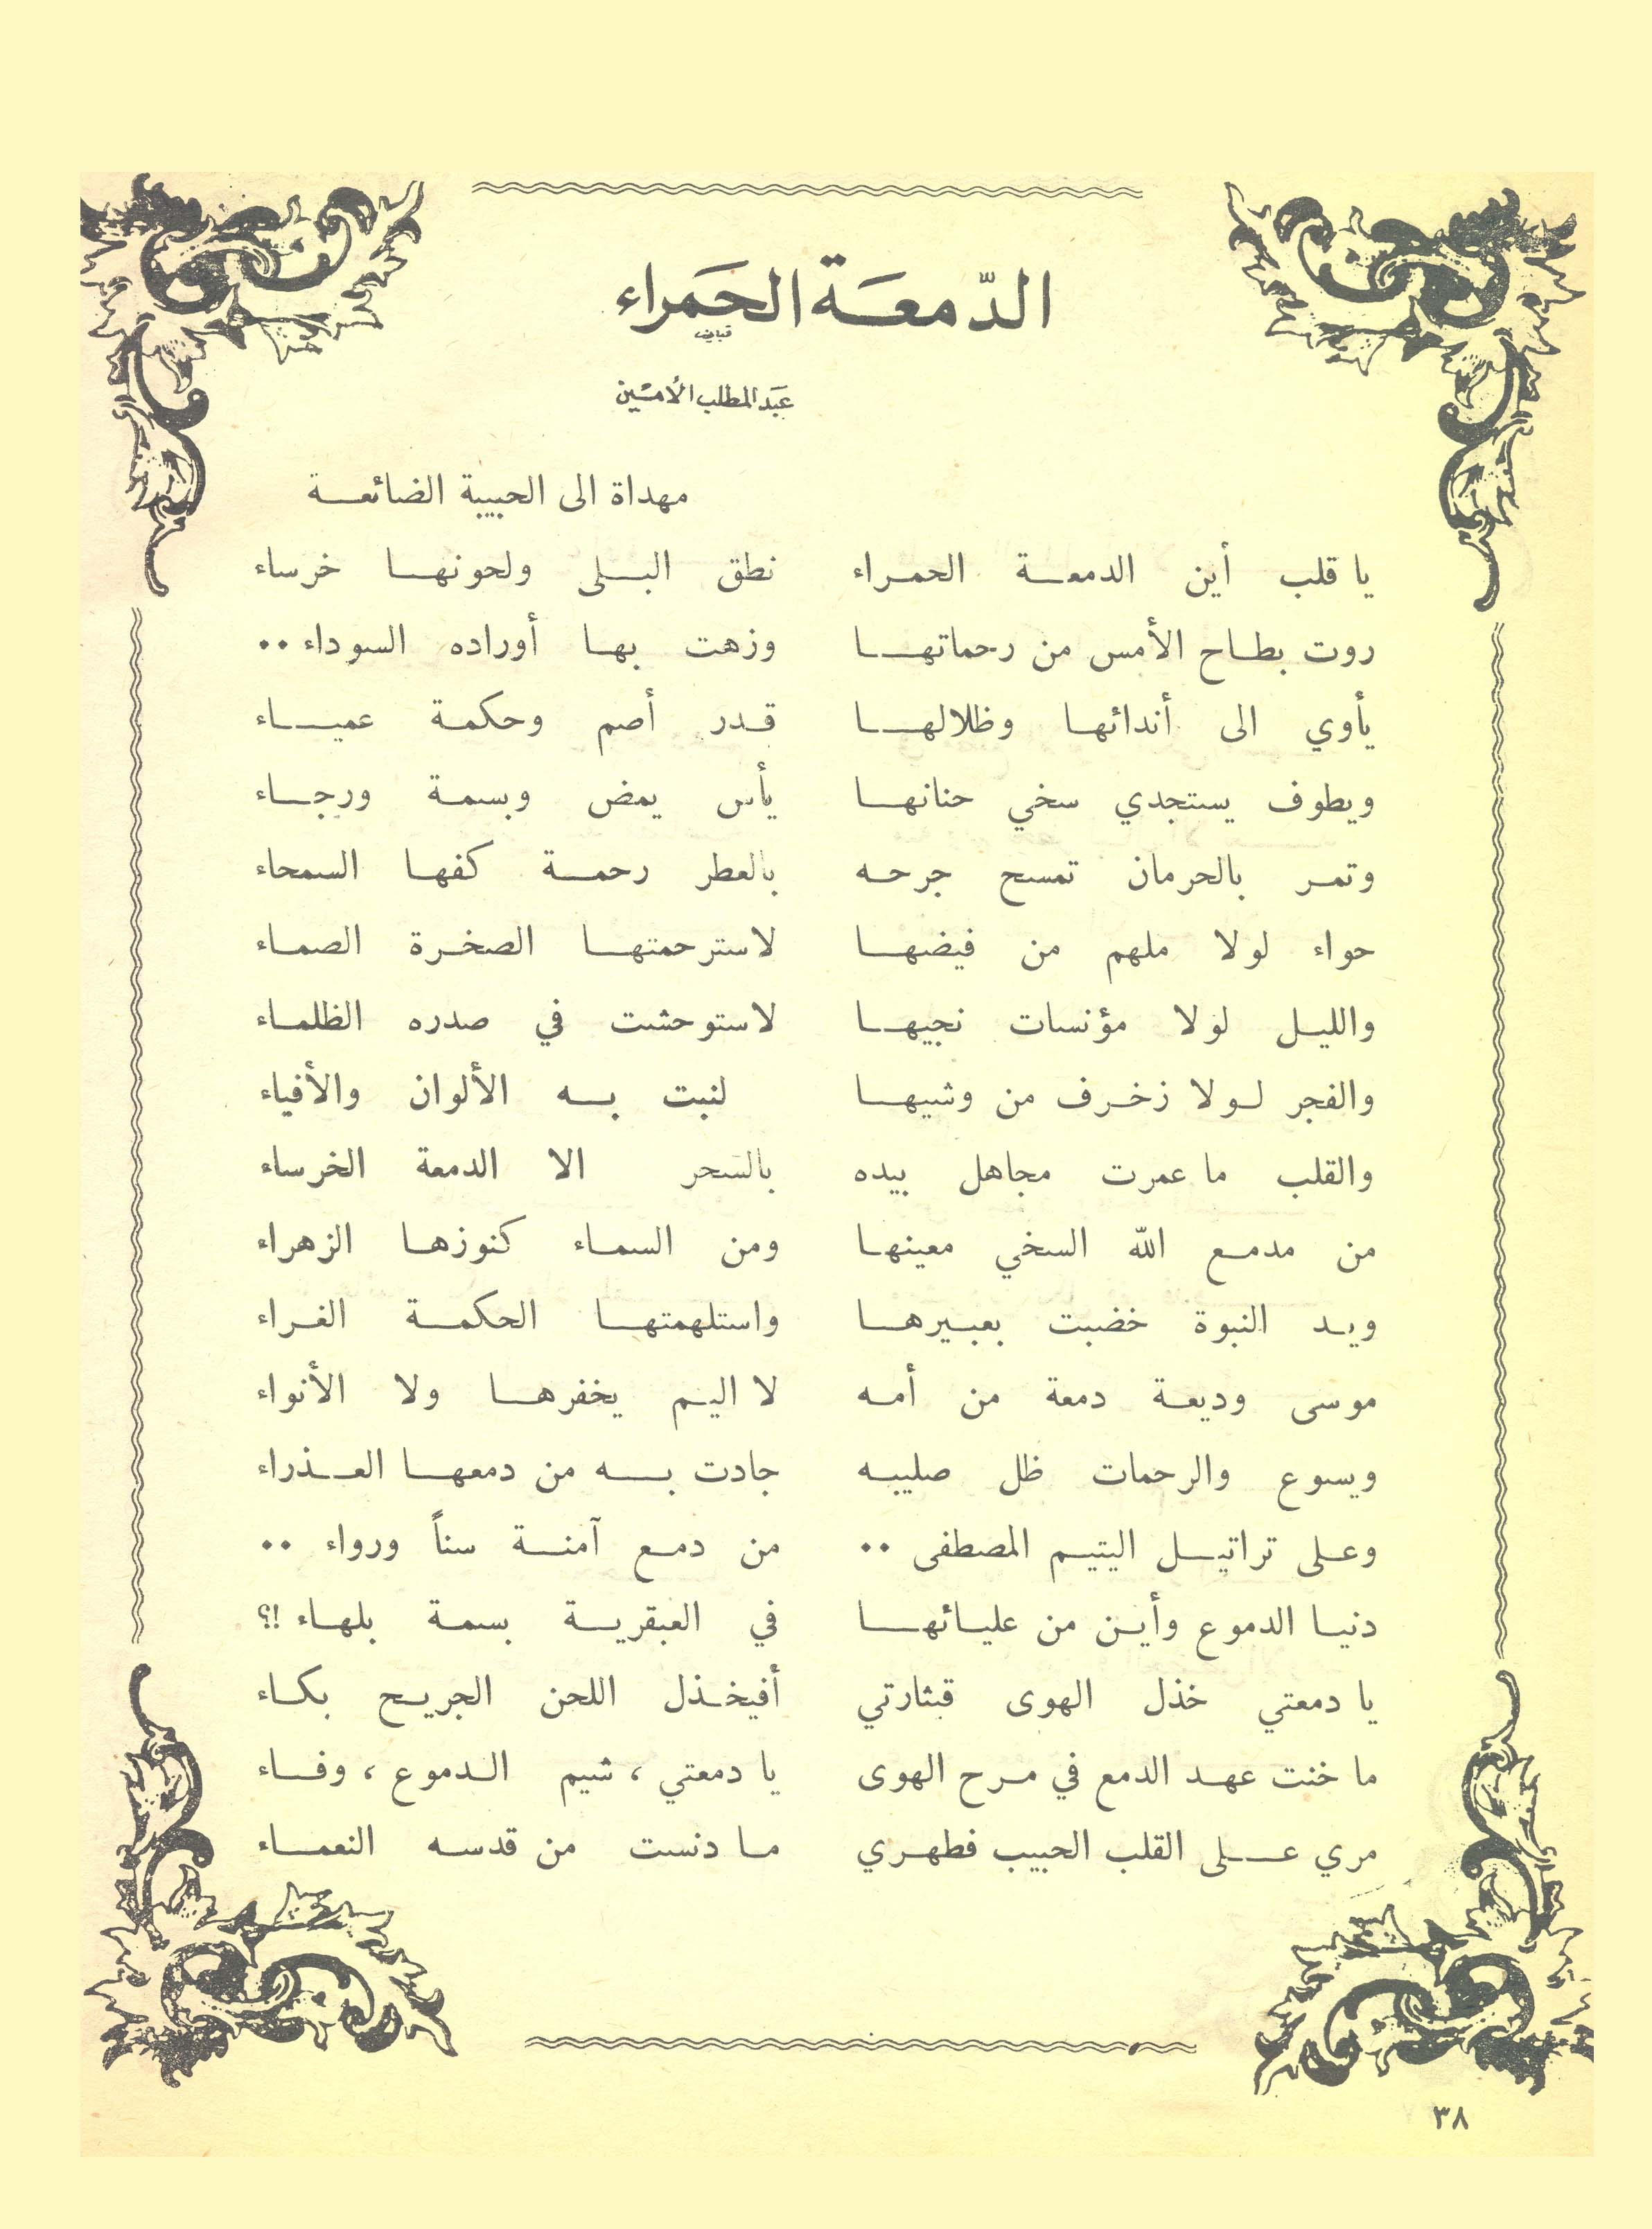 الدّمعَة الحَمراء
عبَد المطلب الأمين
مهداة الى الحبيبة الضائعة
يا قلب أين الدمعة الحمراء نطق البلى ولحونها خرساء
روت بطاح الأمس من رحماتها وزهت بها أوراده السوداء ..
يأوي الى أندائها وظلالها قدر أصم وحكمة عمياء
ويطوف يستجدي سخي حنانها يأس يمض وبسمة ورجاء
وتمر بالحرمان تمسح جرحه بالعطر رحمة كفها السمحاء
حواء لولا ملهم من فيضها لاسترحمتها الصخرة الصماء
والليل لولا مؤنسات نجيها لاستوحشت في صدره الظلماء
والفجر لولا زخرف من وشيها لنبت به الألوان والأفياء
والقلب ما عمرت مجاهل بيده بالسحر الا الدمعة الخرساء
من مدمع الله السخي معينها ومن السماء كنوزها الزهراء
ويد النبوة خضبت بعبيرها واستلهمتها الحكمة الغراء
موسى وديعة دمعة من أمه لا اليم يخفرها ولا الأنواء
ويسوع والرحمات ظل صليبه جادت به من دمعها العذراء
وعلى تراتيل اليتيم المصطفى .. من دمع آمنة سناً ورواء ..
دنيا الدموع وأين من عليائها في العبقرية بسمة بلهاء !؟
يا دمعتي خذل الهوى قيثارتي أفيخذل اللحن الجريح بكاء
ما خنت عهد الدمع في مرح الهوى يا دمعتي ، شيم الدموع ، وفاء
مري على القلب الحبيب فطهري ما دنست من قدسه النعماء
٣٨